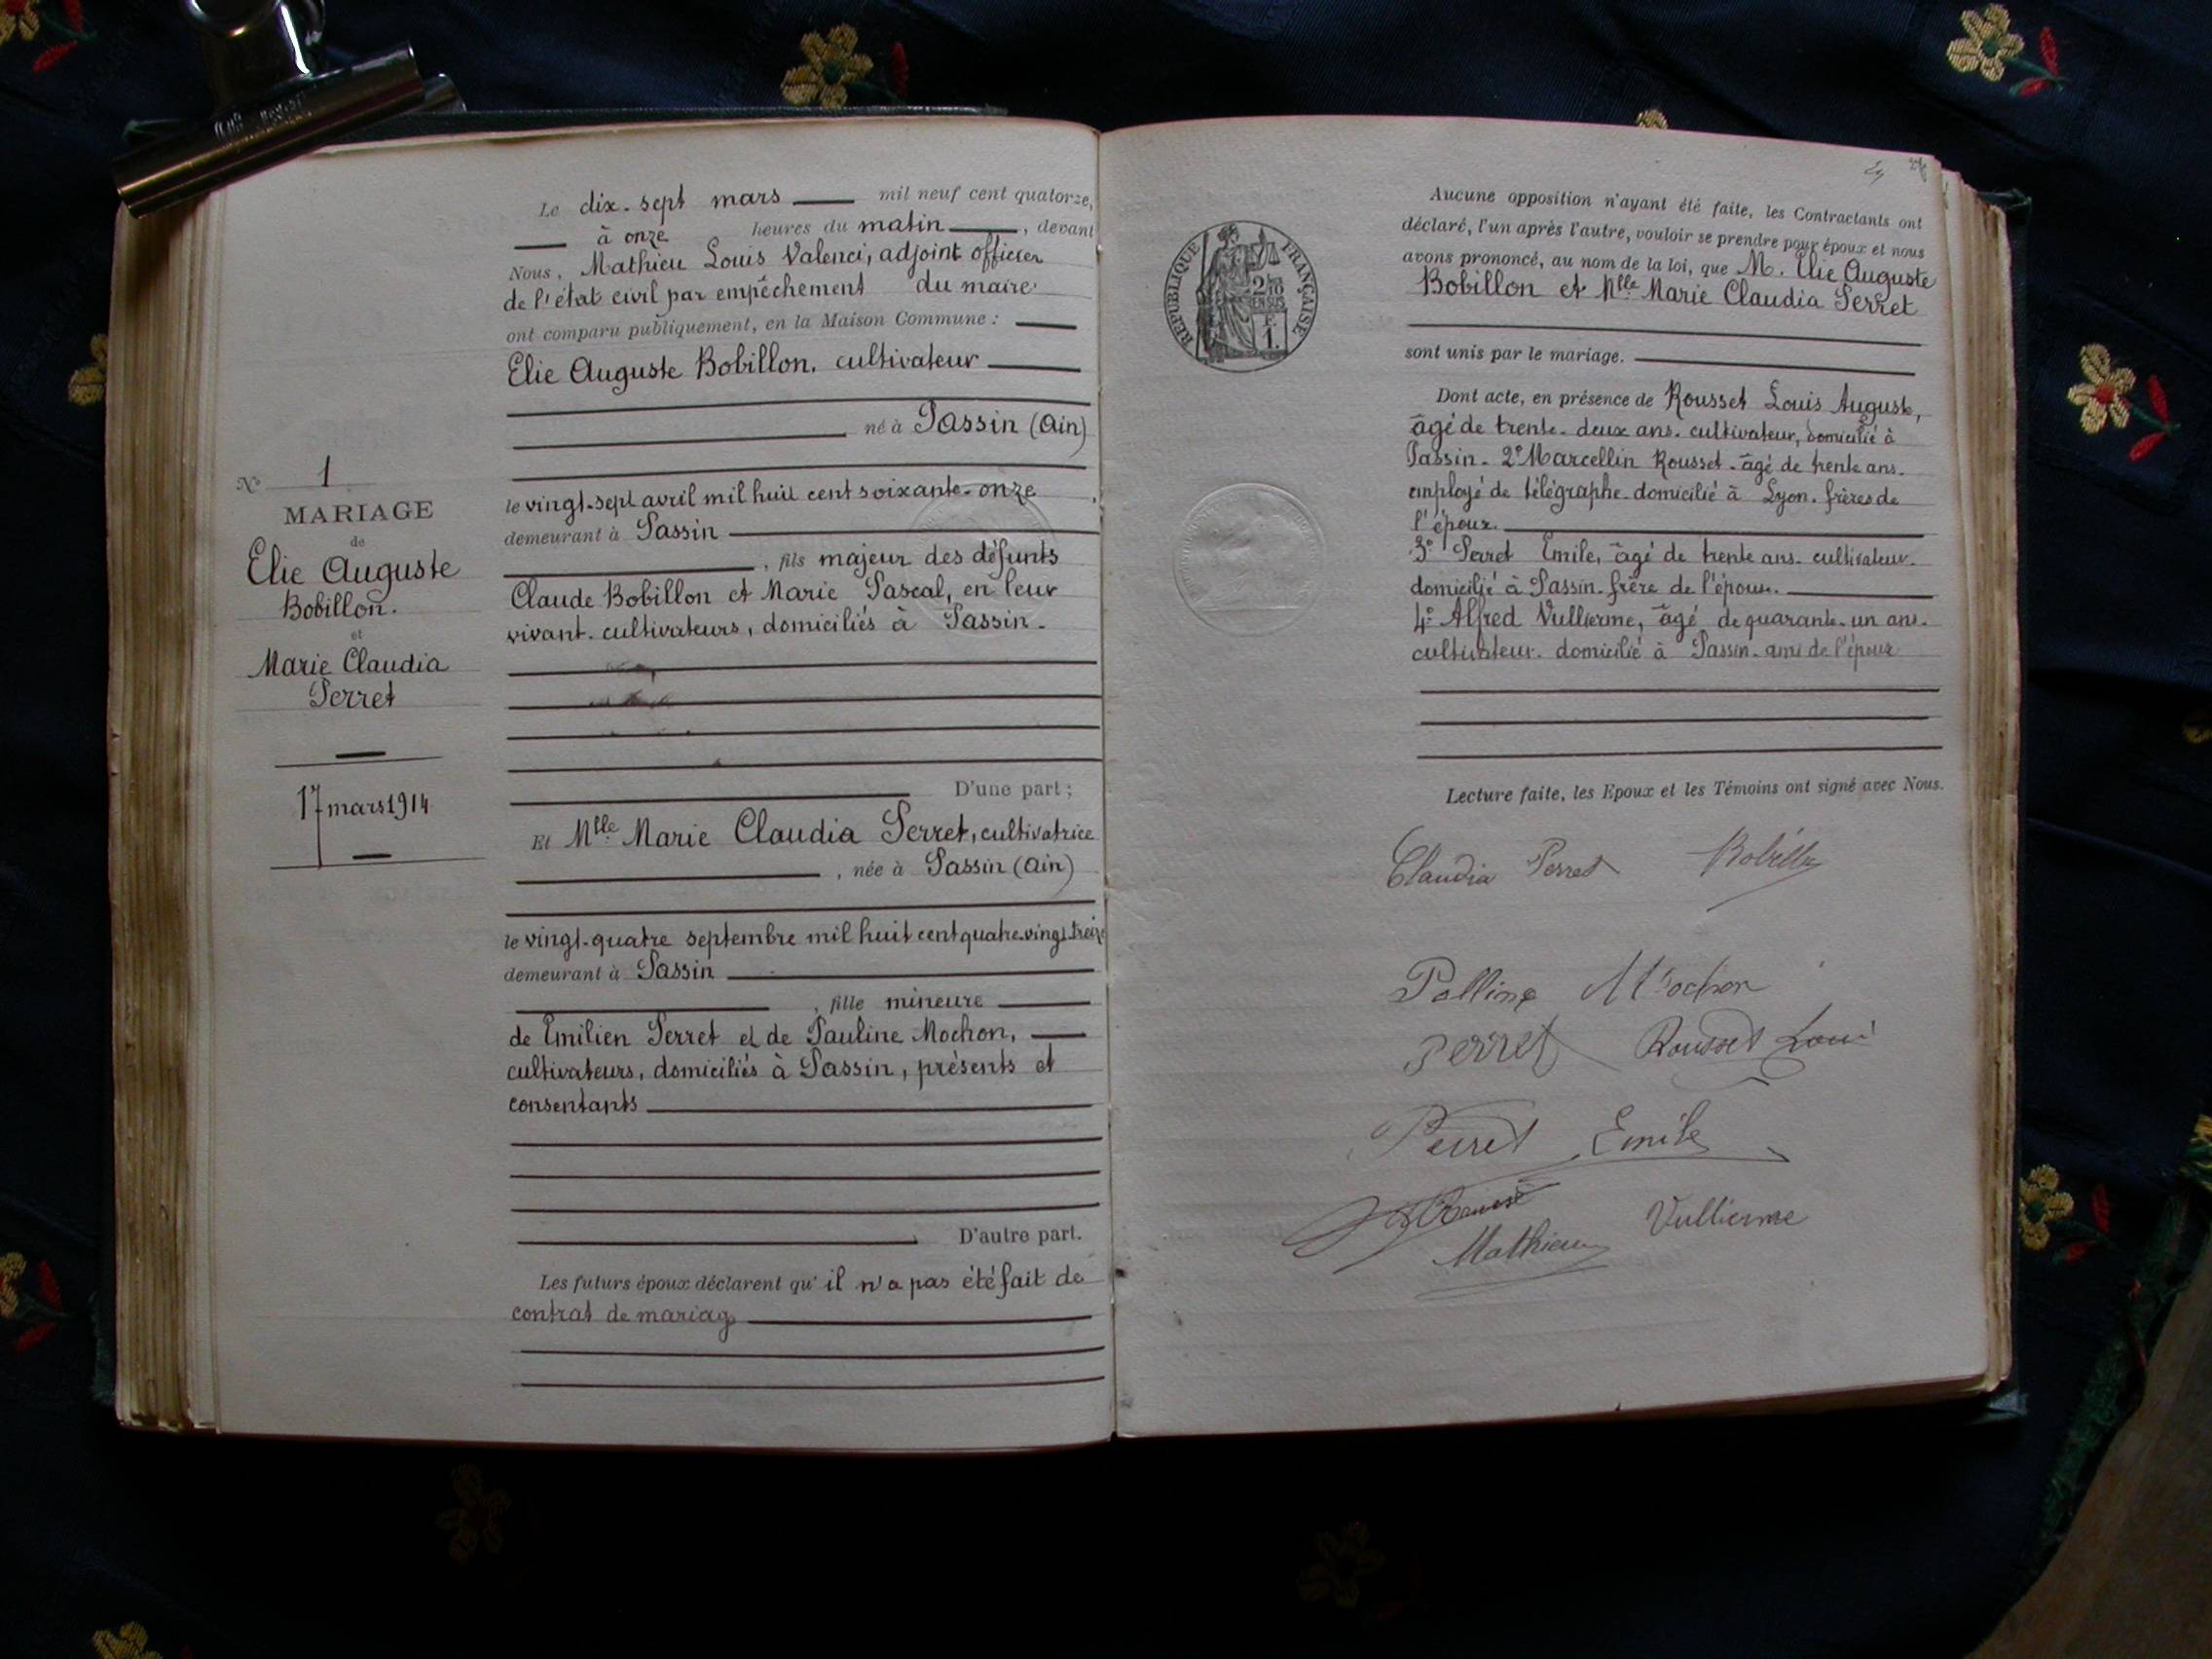 N° 1
MARIAGE
de
Elie Auguste
Bobillon.
et
Marie Claudia
Perret
17 mars 1914
Le dix-sept mars mil neuf cent quatorze,
à onze heures du matin, devant
Nous, Mathieu Louis Valenci, adjoint officier
de l'état civil par empêchement du maire
ont comparu publiquement, en la Maison Commune :
Elie Auguste Bobillon, cultivateur
né à Passin (Ain)
le vingt-sept avril mil huit cent soixante-onze
demeurant à Passin
, fils majeur des défunts
Claude Bobillon et Marie Pascal, en leur
vivant cultivateurs, domiciliés à Passin.
D'une part ;
Et Mlle Marie Claudia Perret, cultivatrice
, née à Passin (Ain)
le vingt-quatre septembre mil huit cent quatre-vingt-treize
demeurant à Passin
, fille mineure
de Emilien Perret et de Pauline Mochon,
cultivateurs, domiciliés à Passin, présents et
consentants
D'autre part.
Les futurs époux déclarent qu'il n'a pas été fait de
contrat de mariage
RÉPUBLIQUE FRANÇAISE
2/10
EN SUS
1
Aucune opposition n'ayant été faite, les Contractants ont
déclaré, l'un après l'autre, vouloir se prendre pour époux et nous
avons prononcé, au nom de la loi, que M. Elie Auguste
Bobillon et Mlle Marie Claudia Perret
sont unis par le mariage.
Dont acte, en présence de Rousset Louis Auguste,
âgé de trente-deux ans, cultivateur, domicilié à
Passin. 2° Marcellin Rousset âgé de trente ans.
employé de télégraphe domicilié à Lyon. frères de
l'époux.
3° Perret Emile, âgé de trente ans. cultivateur.
domicilié à Passin. frère de l'épouse.
4° Alfred Vullierme, âgé de quarante-un ans.
cultivateur. domicilié à Passin. ami de l'époux
Lecture faite, les Epoux et les Témoins ont signé avec Nous.
Claudia Perret Bobillon
Polline Mochon
Perret Rousset Loui
Perret Emile
Vullierme
Mathieu